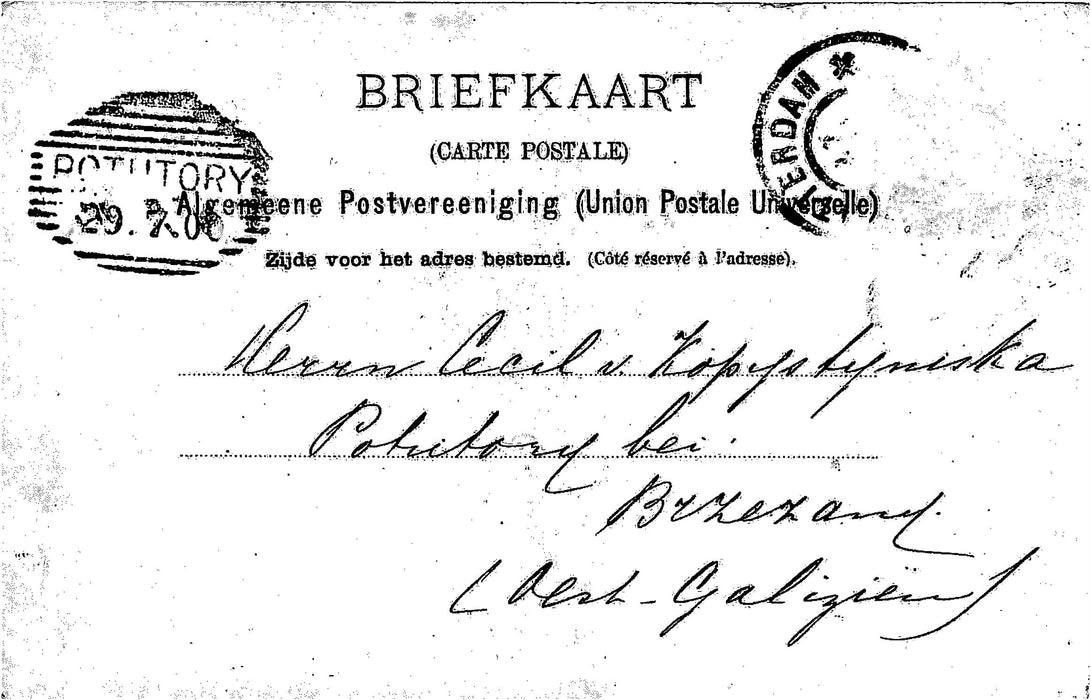 BRIEFKAART
(CARTE POSTALE)
Algemeene Postvereeniging (Union Postale Universelle)
Zijde voor het adres bestemd. (Côté réservé à l'adresse).
POTUTORY
29. 7.00
ERDAM
Herrn Cecil v. Kopystyniska
Potutory bei
Brzezany
(Oest-Galiziën)